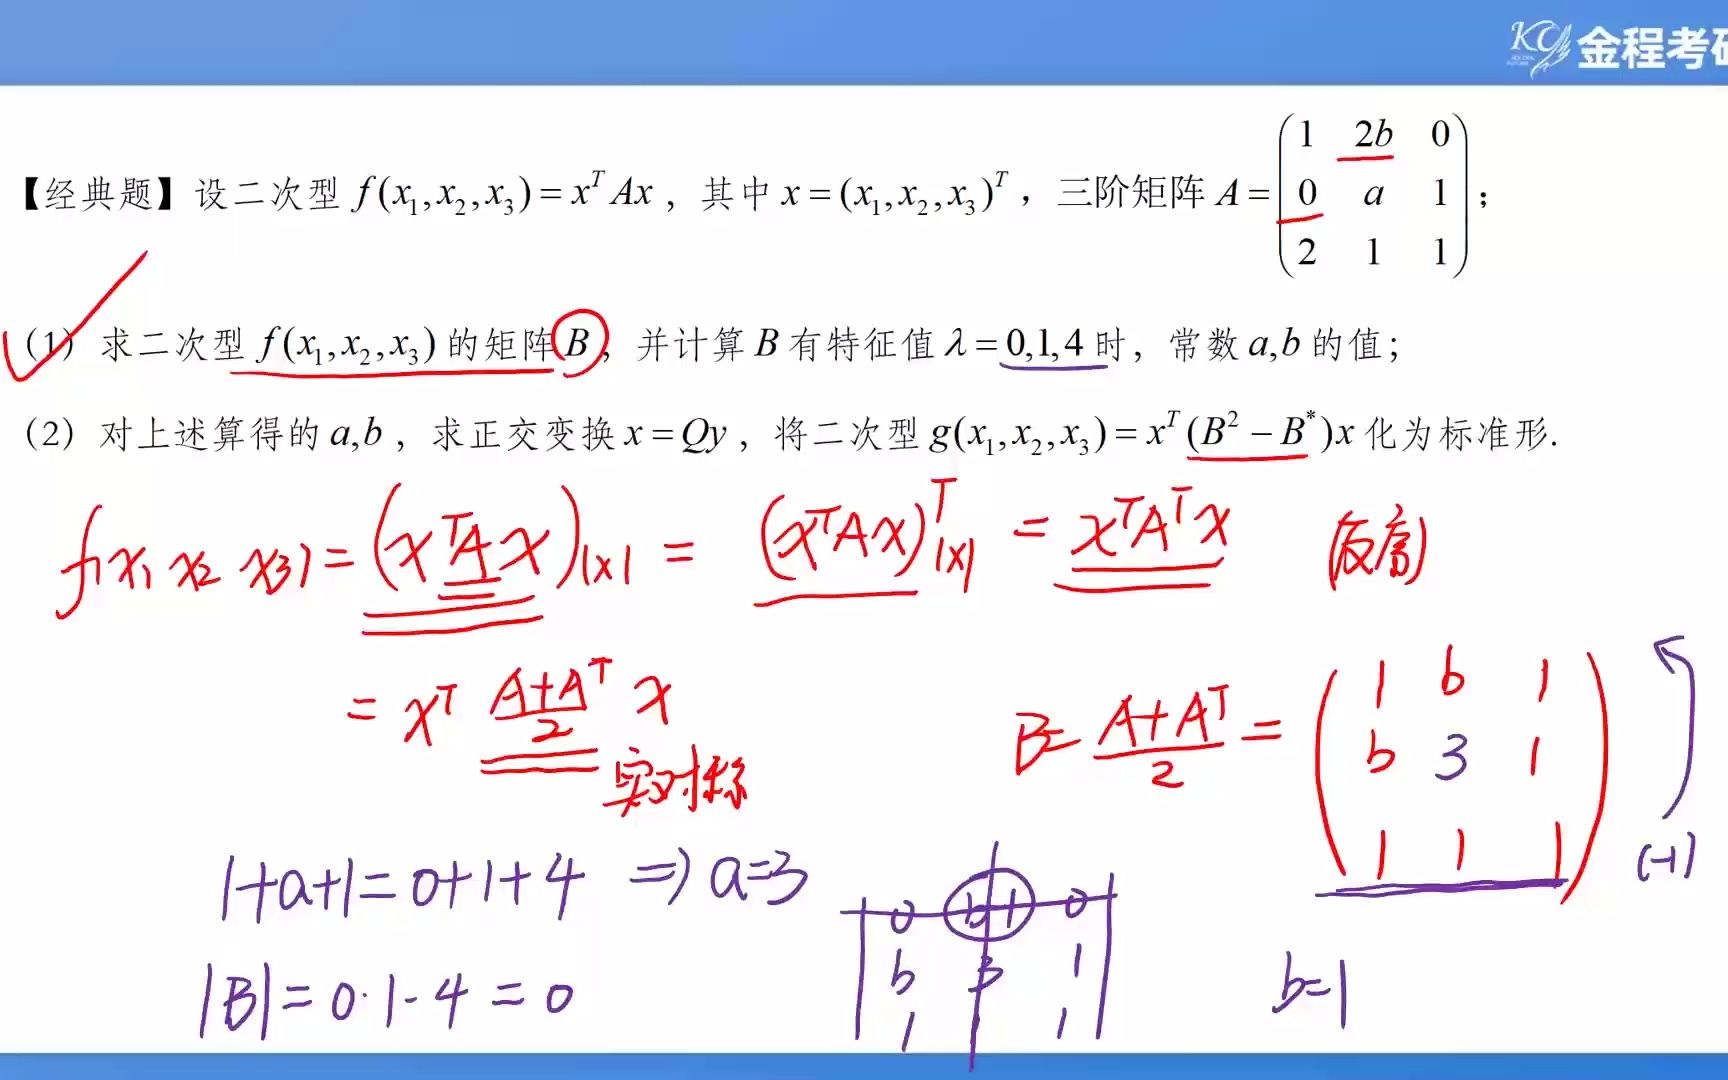 KC 金程考研
【经典题】设二次型 f(x₁,x₂,x₃)=xᵀAx，其中 x=(x₁,x₂,x₃)ᵀ，三阶矩阵 A=(1 2b 0; 0 a 1; 2 1 1)；
(1) 求二次型 f(x₁,x₂,x₃)的矩阵B，并计算B有特征值λ=0,1,4时，常数a,b的值；
(2) 对上述算得的a,b，求正交变换x=Qy，将二次型g(x₁,x₂,x₃)=xᵀ(B²−B*)x化为标准形.
f(x₁ x₂ x₃)=(xᵀAx)₁ₓ₁ = (xᵀAx)ᵀ₁ₓ₁ = xᵀAᵀx
= xᵀ (A+Aᵀ)/2 x
实对称
B= (A+Aᵀ)/2 = (1 b 1; b 3 1; 1 1 1)
(-1)
1+a+1=0+1+4 ⇒ a=3
|B|=0·1·4=0
|0 b-1 0; b 3 1; 1 1|
b=1